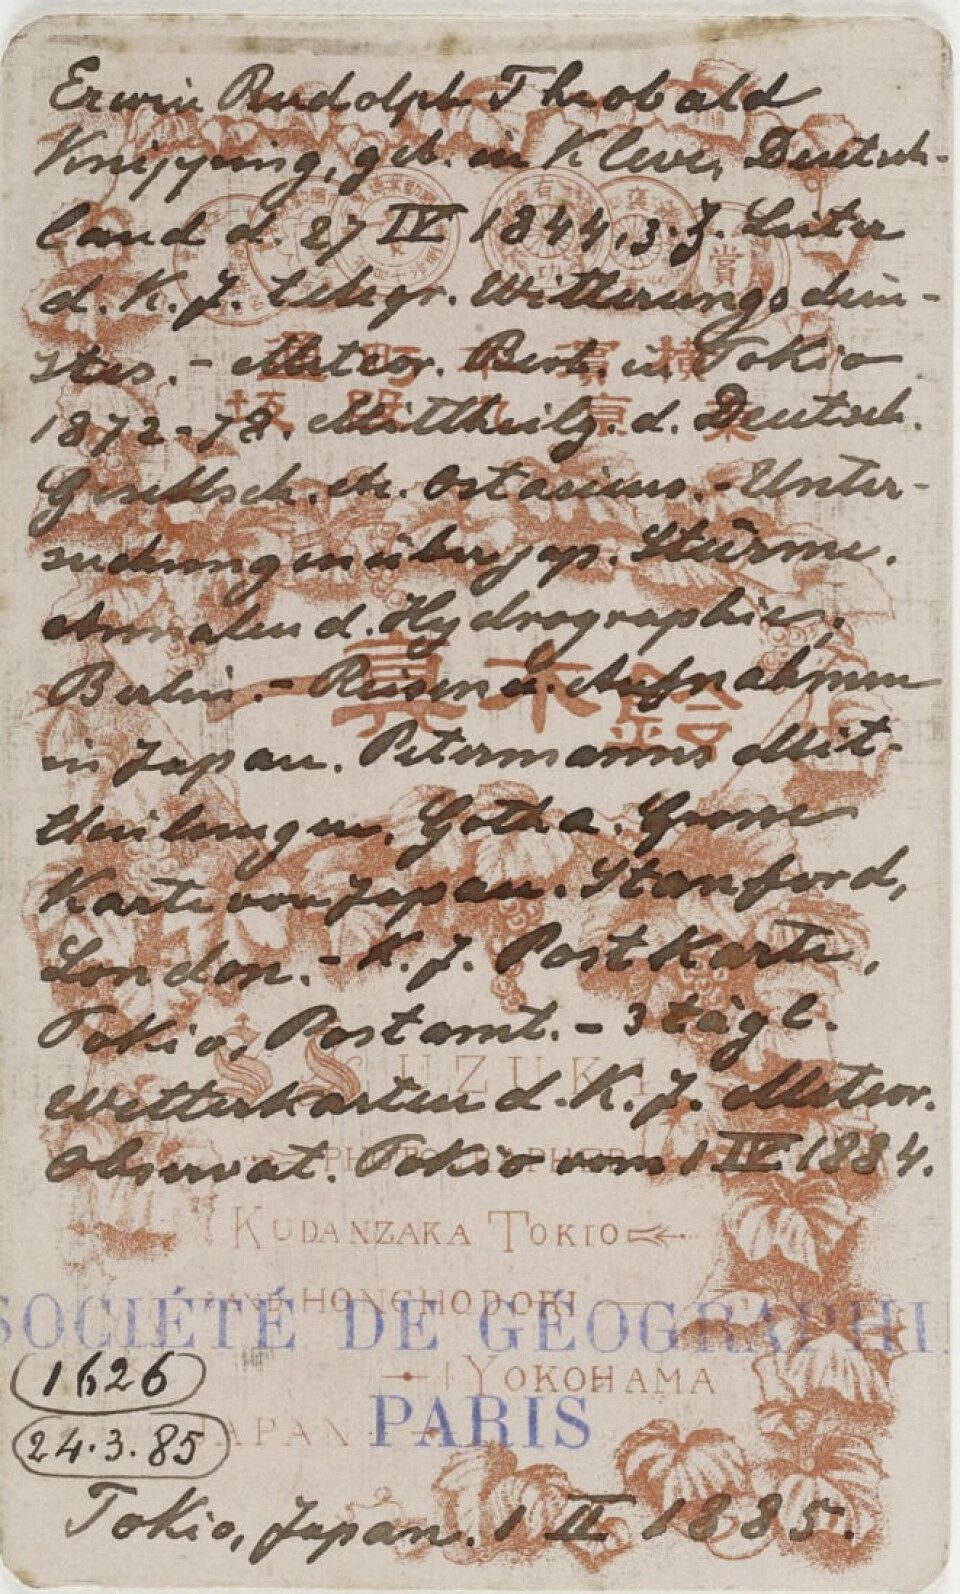 Erwin Rudolph Theobald
Knipping, geb. in Kleve, Deutsch-
land d. 27 IV 1844, z. Z. Leiter
d. K. J. telegr. Witterungsdien-
stes. - Meteor. Beob. in Tokio
1872-78. Mittheilg. d. Deutsch.
Gesellsch. etc. Ostasiens. - Unter-
suchungen über jap. Stürme.
Annalen d. Hydrographie,
Berlin. - Reisen u. Aufnahmen
in Japan. Petermanns Mit-
theilungen. Gotha. Grosse
Karte von Japan. Stanford,
London. - K. J. Postkarte,
Tokio, Postamt. - 3 tägl.
Wetterkarten d. K. J. Meteor.
Observat. Tokio vom 1 IV 1884.
橫濱
東京
鈴木真一
賞
S. SUZUKI
PHOTOGRAPHER
KUDANZAKA TOKIO
AND HONCHODORI
SOCIÉTÉ DE GÉOGRAPHIE
YOKOHAMA
1626
JAPAN
PARIS
24.3.85
Tokio, Japan. 1 II 1885.